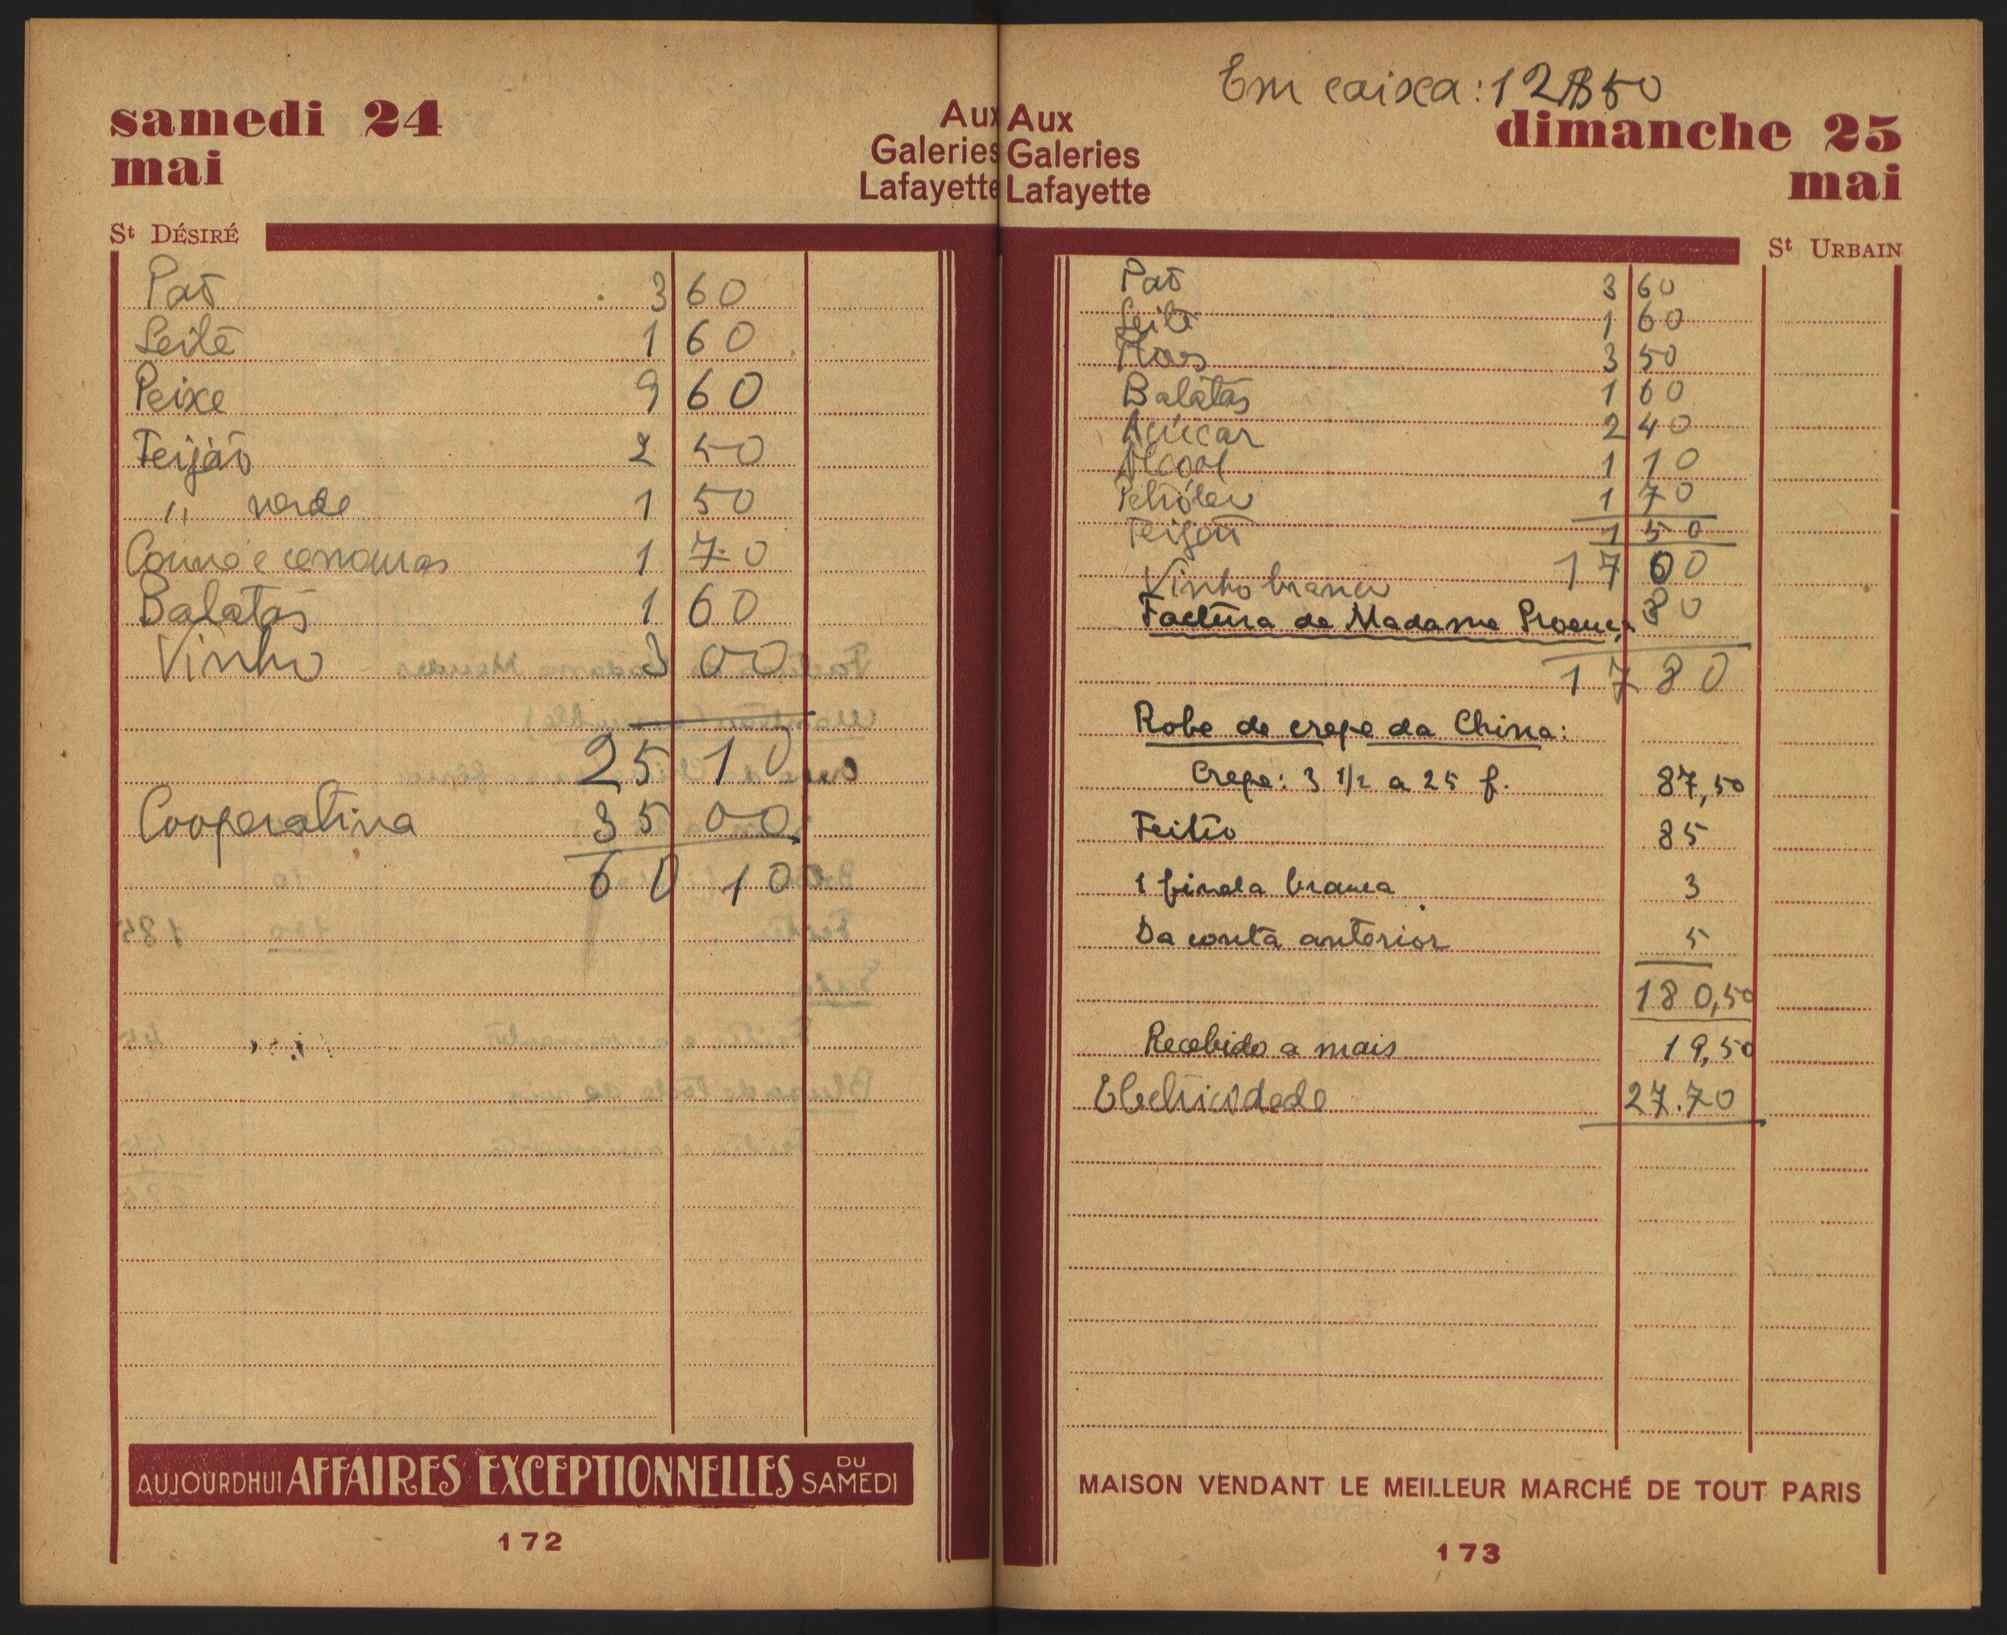 samedi 24
mai
Aux
Galeries
Lafayette
St DÉSIRÉ
Paõ 3 60
Leite 1 60
Peixe 9 60
Feijão 2 50
" verde 1 50
Couve e cenouras 1 70
Batatas 1 60
Vinho 3 00
25 10
Cooperativa 35 00
60 10
AUJOURDHUI AFFAIRES EXCEPTIONNELLES DU SAMEDI
172
Em caixa: 12
Aux
Galeries
Lafayette
dimanche 25
mai
St URBAIN
Paõ 3 60
Leite 1 60
3 50
Batatas 1 60
Açúcar 2 40
Alcool 1 10
Petróleo 1 70
Feijão 1 50
17 00
Vinho branco 80
Factura de Madame Proença
17 80
Robe de crepe da China:
Crepe: 3 1/2 a 25 f. 87,50
Feitio 85
1 fivela branca 3
Da conta anterior 5
180,50
Recebido a mais 19,50
Electricidade 27.70
MAISON VENDANT LE MEILLEUR MARCHÉ DE TOUT PARIS
173